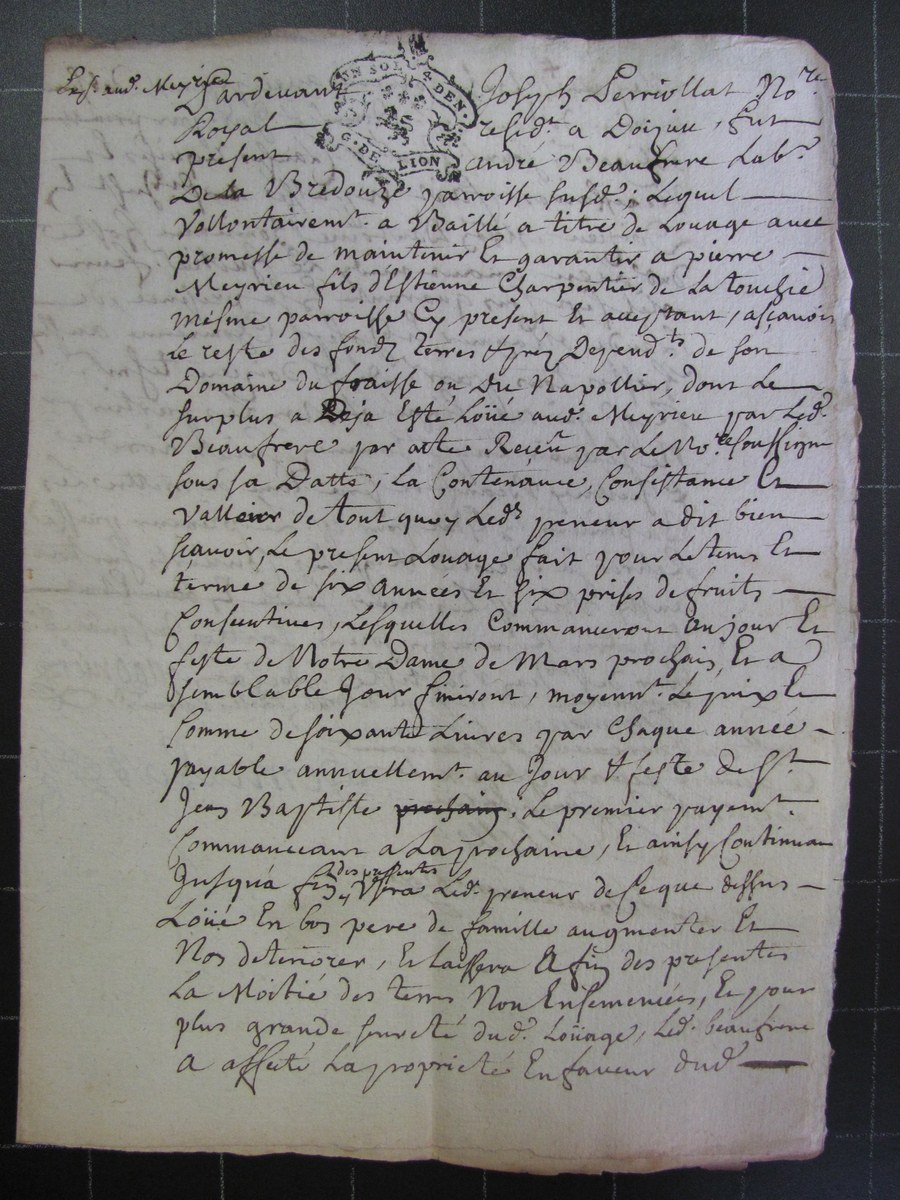 Exp. aud. Meyrieu
UN SOL 4 DEN.
G. DE LION
Pardevant Joseph Perriollat No.re
Royal residt. a Doizieu, fut
présent andré Beaufrere Labr.
De la Bredouze parroisse susd.; Lequel
Vollontairemt. a Baillé a titre de Louage avec
promesse de maintenir Et garantir a pierre
Meyrieu fils d'Estienne Charpentier de La touchie
mesme parroisse Cy present Et aceptant, asçavoir
Le reste des fondz terres & prez Depend.ts de son
Domaine du fraisse ou Du Napollier, dont Le
surplus a Deja Esté Loüé aud. Meyrieu par Led.
Beaufrere par atte Receu par Le No.re soussigné
sous sa Datte, La Contenance, Consistance Et
Valleur de tout quoy Led. preneur a dit bien
sçavoir, Le present Louage fait pour Le tems Et
terme de six années Et six prises de fruits
Consecutives, Lesquelles Commanceront au jour Et
feste de Notre Dame de Mars prochain, Et a
semblable Jour finiront, moyent. Le prix Et
somme de soixante Livres par Chaque année
payable annuellemt. au Jour & feste de St.
Jean Baptiste prochain, Le premier payemt.
Commanceant a La prochaine, Et ainsy Continuer
des presentes
Jusqu'a fin, Usera Led. preneur de Ce que dessus
Loüé En bon pere de famille augmenter Et
Non deteriorer, Et Laissera A fin des presentes
La Moitié des terres Non Ensemencées, Et pour
plus grande sureté dud. Loüage, Led. beaufrere
a affecté La proprieté En faveur dud.